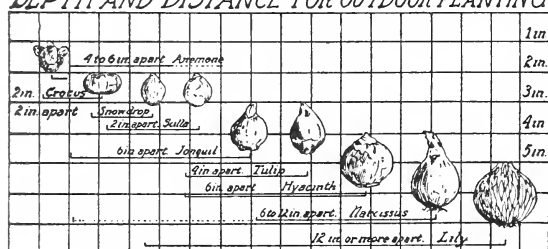 DEPTH AND DISTANCE FOR OUTDOOR PLANTING
1 in.
4 to 6 in. apart Anemone
2 in.
2 in. Crocus
3 in.
2 in. apart Snowdrop
2 in. apart. Scilla
4 in
6 in. apart Jonquil
5 in.
4 in. apart. Tulip
6 in. apart Hyacinth
6 to 12 in. apart. Narcissus
12 in. or more apart. Lily